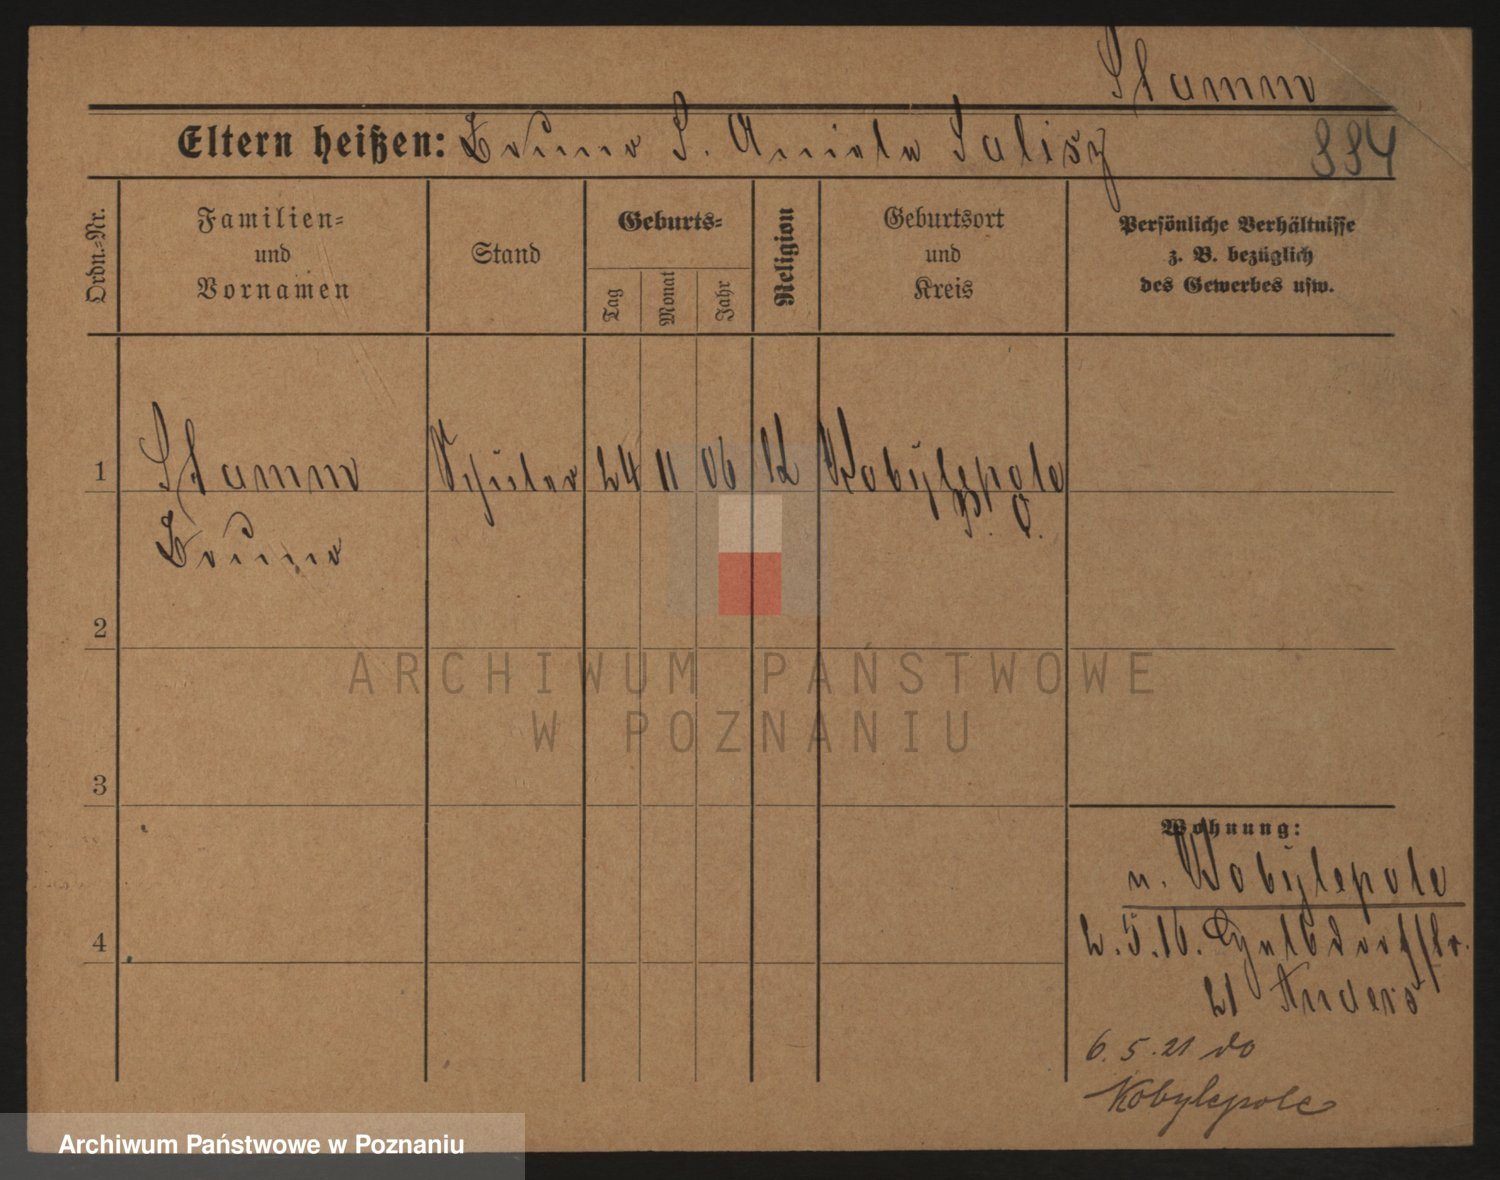 Stamm
Eltern heißen: Bruno S. Aniela Salisz
884
Ordn.-Nr.
Familien-
und
Vornamen
Stand
Geburts-
Tag
Monat
Jahr
Religion
Geburtsort
und
Kreis
Persönliche Verhältnisse
z. B. bezüglich
des Gewerbes usw.
1
Stamm Schüler 24 11 06 Kobylepole
P. O.
Bruno
2
ARCHIWUM PAŃSTWOWE
W POZNANIU
3
Wohnung:
n. Kobylepole
4
2. 5. 16.
21 Anders
6. 5. 21 do
Kobylepole
Archiwum Państwowe w Poznaniu